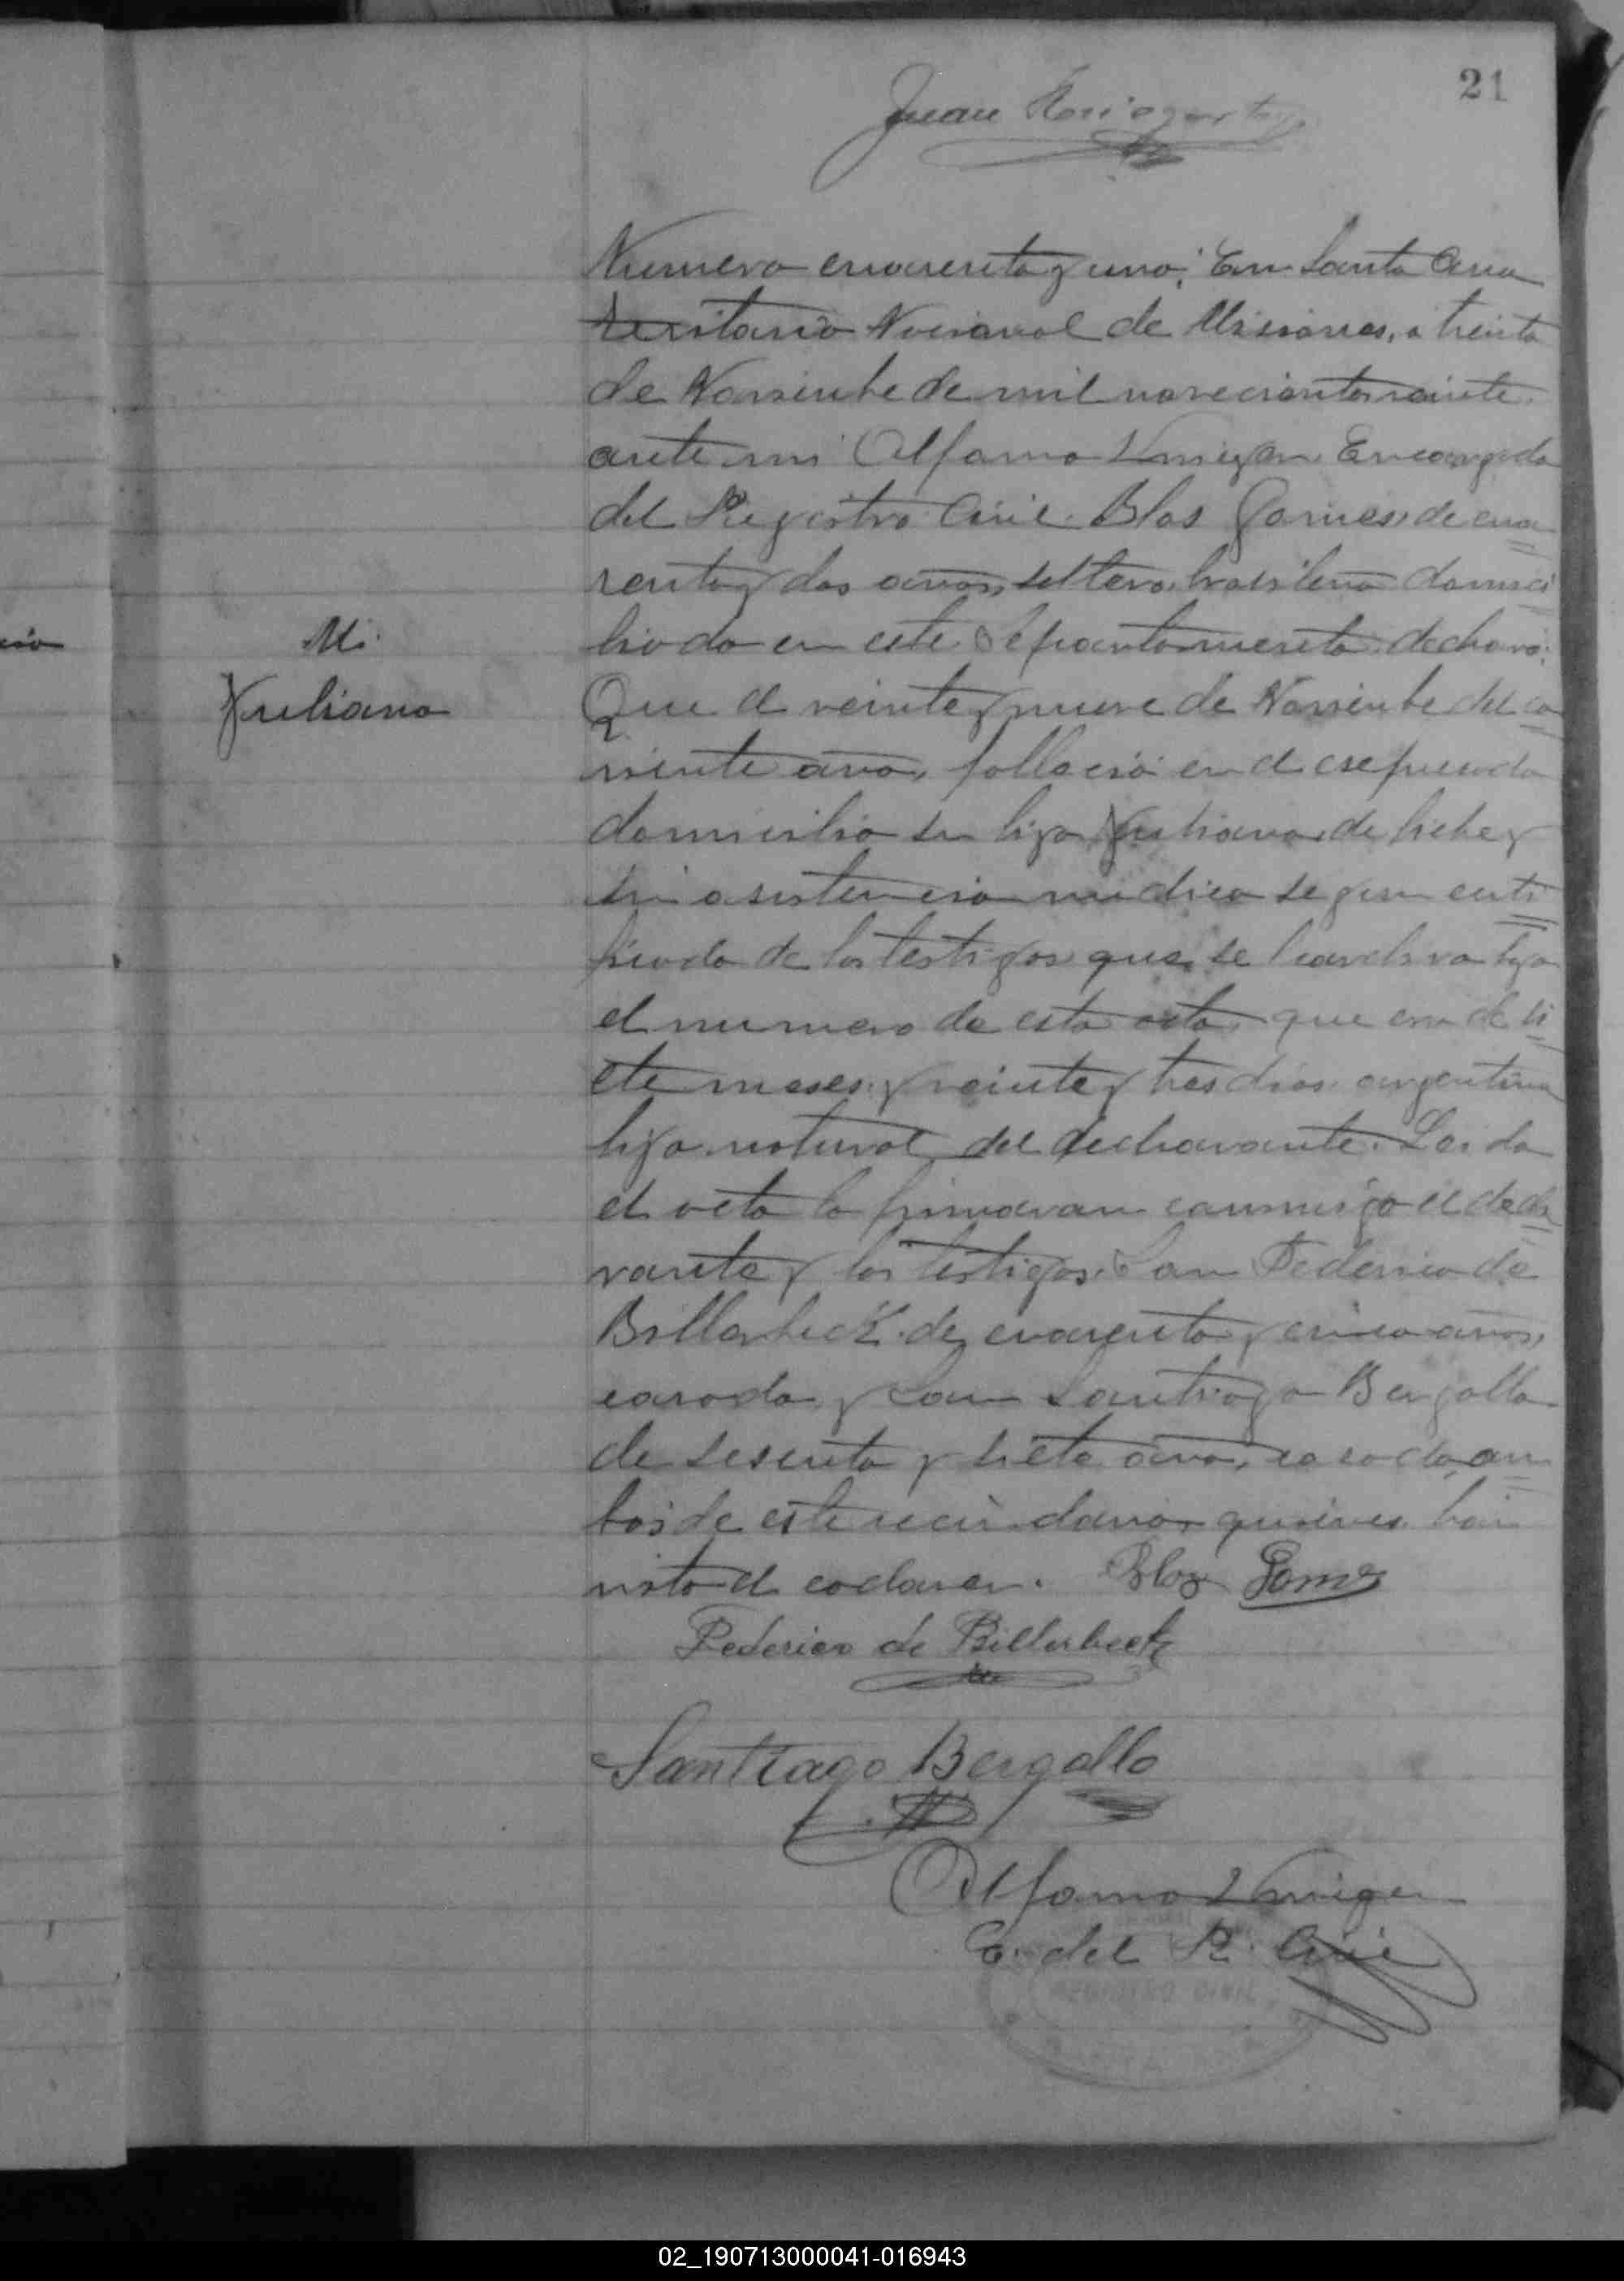 21
Juan
Numero cuarenta y uno: En Santa Ana
territorio Nacional de Misiones, a treinta
de Noviembre de mil novecientos veinte
ante mi Encargado
del Registro Civil. Blas Gomes, de cua
renta y dos años, soltero, brasilero domici
liado en este Departamento declaro:
Que el veinte y nueve de Noviembre del co
rriente año, fallecio en el espresado
domicilio su hijo Juliano, de fiebre y
sin asistencia medica segun certi
ficado de los testigos que se archiva bajo
el numero de esta acta que era de si
ete meses y veinte y tres dias argentino
hijo natural del declarante. Leida
el acta la firmaran conmigo el decla
rante y los testigos. Don Federico de
Billerbeck de cuarenta y cinco años,
casado y Don Santiago Bergallo
de sesenta y siete años, casado, am
bos de este vecindario, quienes han
visto el cadaver. Blas Gomes
Federico de Billerbeck
Santiago Bergallo
E. del R. Civil
REGISTRO CIVIL
Juliano
02_190713000041-016943